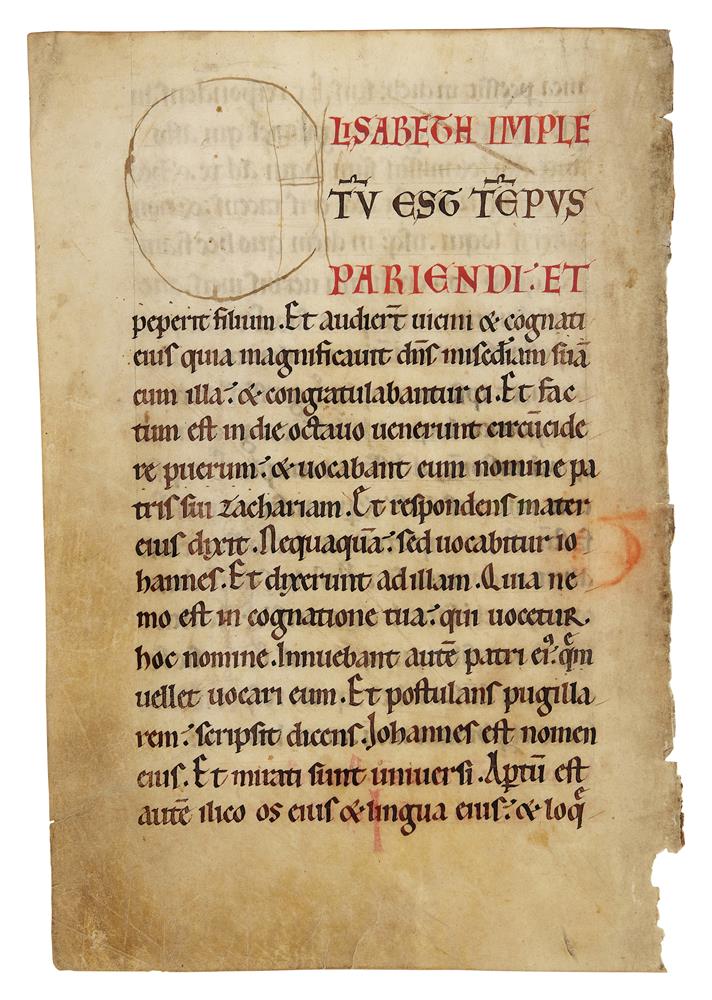 LISABETH IMPLE
TV̄ EST TĒPVS
PARIENDI. ET
peperit filium. Et audier̄t uicini & cognati
eius quia magnificauit dn̄s misc̄diam suā
cum illa: & congratulabantur ei. Et fac
tum est in die octauo uenerunt circūcide
re puerum: & uocabant eum nomine pa
tris sui zachariam. Et respondens mater
eius dixit. Nequaquā: sed uocabitur io
hannes. Et dixerunt ad illam. Quia ne
mo est in cognatione tua: qui uocetur
hoc nomine. Innuebant autē patri ei᾿: qͤm
uellet uocari eum. Et postulans pugilla
rem: scripsit dicens. Johannes est nomen
eius. Et mirati sunt uniuersi. Aptū est
autē ilico os eius & lingua eius: & loqͤ